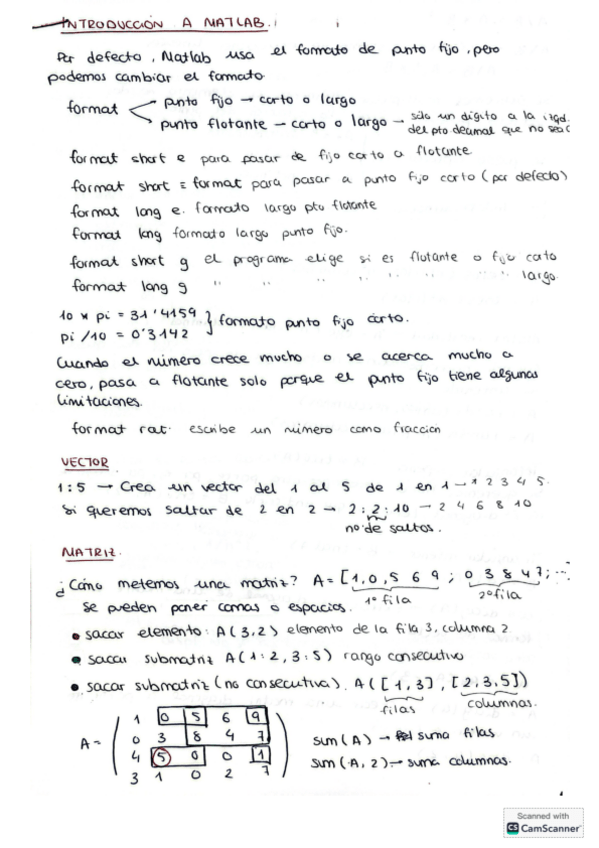 INTRODUCCIÓN A MATLAB.
Por defecto, Matlab usa el formato de punto fijo, pero
podemos cambiar el formato
format punto fijo → corto o largo
punto flotante → corto o largo → sólo un dígito a la izqd.
del pto decimal que no sea
format short e para pasar de fijo corto a flotante
format short = format para pasar a punto fijo corto (por defecto)
format long e. formato largo pto flotante
format long formato largo punto fijo.
format short g el programa elige si es flotante o fijo corto
format long g " " " " " " " largo.
10 * pi = 31'4159
pi /10 = 0'3142 } formato punto fijo corto.
Cuando el número crece mucho o se acerca mucho a
cero, pasa a flotante solo porque el punto fijo tiene algunas
limitaciones.
format rat. escribe un número como fraccion
VECTOR
1:5 → Crea un vector del 1 al 5 de 1 en 1 → 1 2 3 4 5.
Si queremos saltar de 2 en 2 → 2:2:10 → 2 4 6 8 10
nº de saltos.
MATRIZ.
¿Cómo metemos una matriz? A = [1,0,5 6 9 ; 0 3 8 4 7; ...
Se pueden poner comas o espacios. 1º fila 2º fila
• sacar elemento: A(3,2) elemento de la fila 3, columna 2.
• sacar submatriz A(1:2, 3:5) rango consecutivo
• sacar submatriz (no consecutiva). A([1,3], [2,3,5])
filas columnas.
1 0 5 6 9
A = 0 3 8 4 7 sum(A) → suma filas
4 5 0 0 1 sum(A,2) → suma columnas.
3 1 0 2 7
Scanned with
CS CamScanner